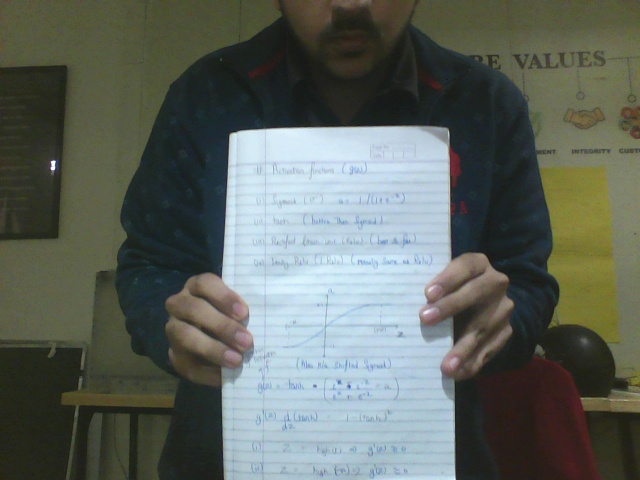 RE VALUES
MENT INTEGRITY CUSTO
Page No.
Date
# Activation functions (g(z))
(i) Sigmoid (σ) a = 1/(1+e^-z)
(ii) tanh (better than Sigmoid)
(iii) Rectified Linear Unit (Relu)
(iv) Leaky Relu (L Relu) (mostly same as Relu)
a
z
(Also k/a Shifted Sigmoid)
g(z) = tanh = (e^z - e^-z / e^z + e^-z = a)
g'(z) d/dz (tanh) = 1 - (tanh)^2
(i) z = high(+) ⇒ g'(z) ≈ 0
(ii) z = high (-) ⇒ g'(z) ≈ 0